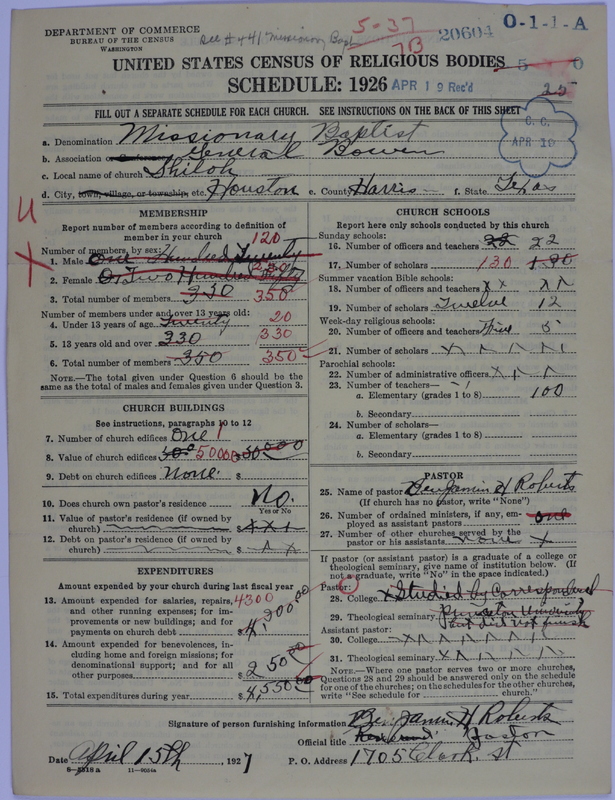 DEPARTMENT OF COMMERCE
BUREAU OF THE CENSUS
WASHINGTON
See #441 Missionary Bapt
5-37
7B
20604
O-1-1-A
UNITED STATES CENSUS OF RELIGIOUS BODIES
SCHEDULE: 1926
APR 19 Rec'd
25
FILL OUT A SEPARATE SCHEDULE FOR EACH CHURCH. SEE INSTRUCTIONS ON THE BACK OF THIS SHEET
C. C.
APR 19
a. Denomination Missionary Baptist
b. Association or Conference General Bowen
c. Local name of church Shiloh
d. City, town, village, or township, etc. Houston e. County Harris f. State Texas
MEMBERSHIP
Report number of members according to definition of member in your church
120
Number of members, by sex:
1. Male One Hundred Twenty
2. Female Two Hundred fifty 230
3. Total number of members 350 350
Number of members under and over 13 years old:
4. Under 13 years of age Twenty 20
5. 13 years old and over 330 330
6. Total number of members 350 350
NOTE.—The total given under Question 6 should be the same as the total of males and females given under Question 3.
CHURCH BUILDINGS
See instructions, paragraphs 10 to 12
7. Number of church edifices One 1
8. Value of church edifices 50000 $50000
9. Debt on church edifices None. $
10. Does church own pastor's residence No.
Yes or No
11. Value of pastor's residence (if owned by church) $ x x x
12. Debt on pastor's residence (if owned by church) $ x x
EXPENDITURES
Amount expended by your church during last fiscal year
13. Amount expended for salaries, repairs, and other running expenses; for improvements or new buildings; and for payments on church debt 4300 $4,300.00
14. Amount expended for benevolences, including home and foreign missions; for denominational support; and for all other purposes 250.00
15. Total expenditures during year $4,550.00
CHURCH SCHOOLS
Report here only schools conducted by this church
Sunday schools:
16. Number of officers and teachers 22 22
17. Number of scholars 130 130
Summer vacation Bible schools:
18. Number of officers and teachers x x x x
19. Number of scholars Twelve 12
Week-day religious schools:
20. Number of officers and teachers Five 5
21. Number of scholars x x x x x
Parochial schools:
22. Number of administrative officers x x x
23. Number of teachers—
a. Elementary (grades 1 to 8) 100
b. Secondary
24. Number of scholars—
a. Elementary (grades 1 to 8)
b. Secondary
PASTOR
25. Name of pastor Benjamin H Roberts
(If church has no pastor, write "None")
26. Number of ordained ministers, if any, employed as assistant pastors one
27. Number of other churches served by the pastor or his assistants none x
If pastor (or assistant pastor) is a graduate of a college or theological seminary, give name of institution below. (If not a graduate, write "No" in the space indicated.)
Pastor:
28. College x Studied by Correspondence
29. Theological seminary Princeton University
but did not finish
Assistant pastor:
30. College x x x x x x
31. Theological seminary x x x x x
NOTE.—Where one pastor serves two or more churches, Questions 28 and 29 should be answered only on the schedule for one of the churches; on the schedules for the other churches, write "See schedule for church."
Signature of person furnishing information Benjamin H Roberts
Official title Pastor
Date April 15th, 1927 P. O. Address 1705 Clark. St
8-5518 a 11-9054a